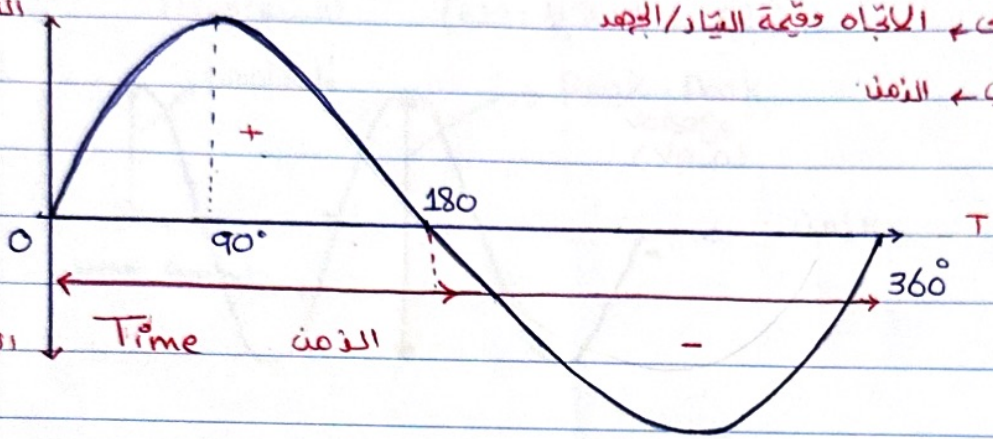 الاتجاه وقيمة التيار/الجهد ←
← الزمن
+
180
0
90°
T
360°
Time الزمن
-